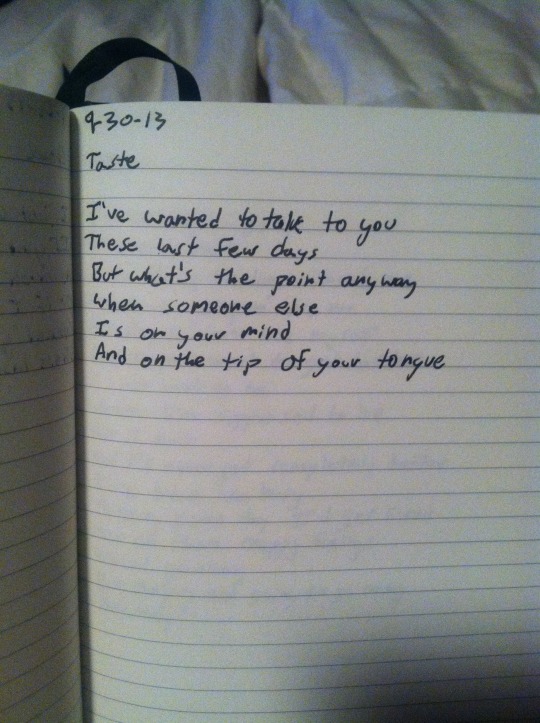 9-30-13
Taste
I've wanted to talk to you
These last few days
But what's the point anyway
When someone else
Is on your mind
And on the tip of your tongue